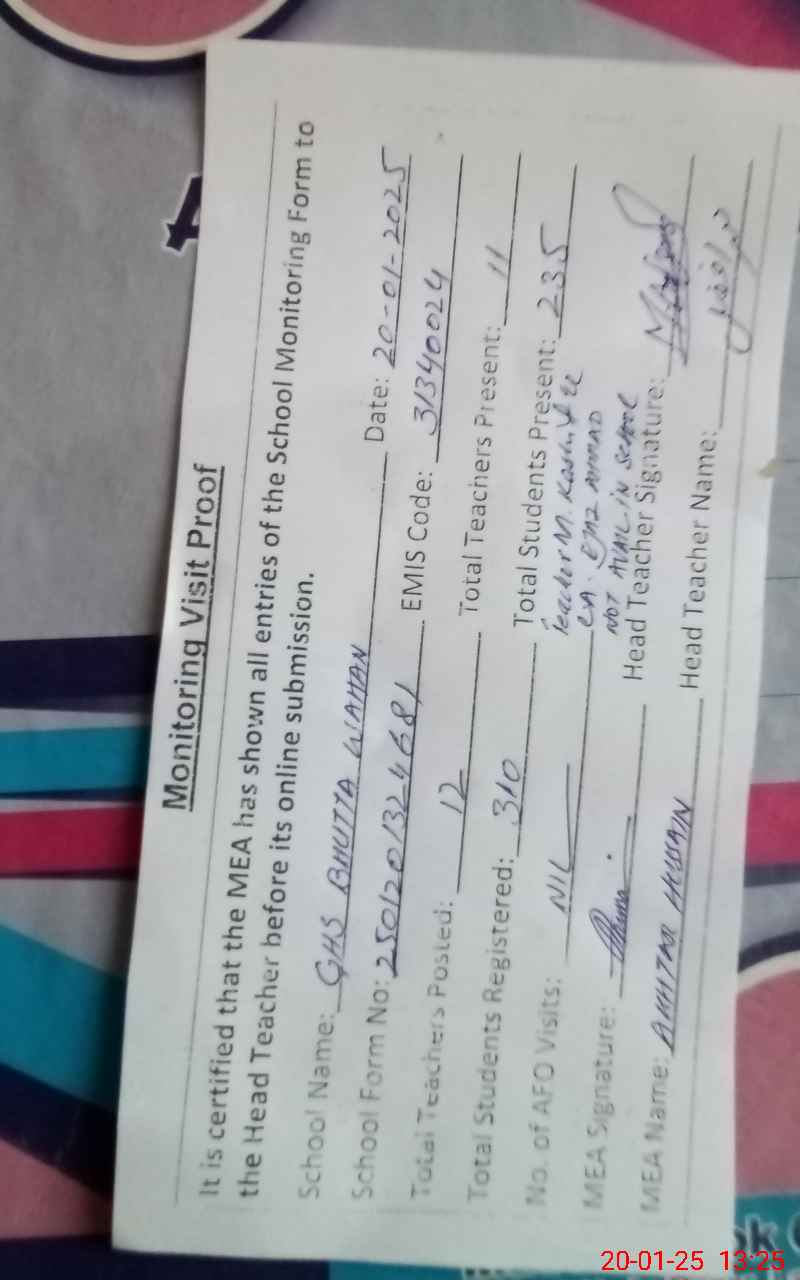 Monitoring Visit Proof
It is certified that the MEA has shown all entries of the School Monitoring Form to
the Head Teacher before its online submission.
School Name: GHS BHUTTA WAHAN Date: 20-01-2025
School Form No: 2501201324681 EMIS Code: 31340024
Total Teachers Posted: 12 Total Teachers Present: 11
Total Students Registered: 310 Total Students Present: 235
No. of AFO Visits: NIL Teacher M. Kashif &
NOT AVAIL IN SCHOOL
MEA Signature: Head Teacher Signature:
MEA Name: AKHTAR HUSSAIN Head Teacher Name:
20-01-25 13:25